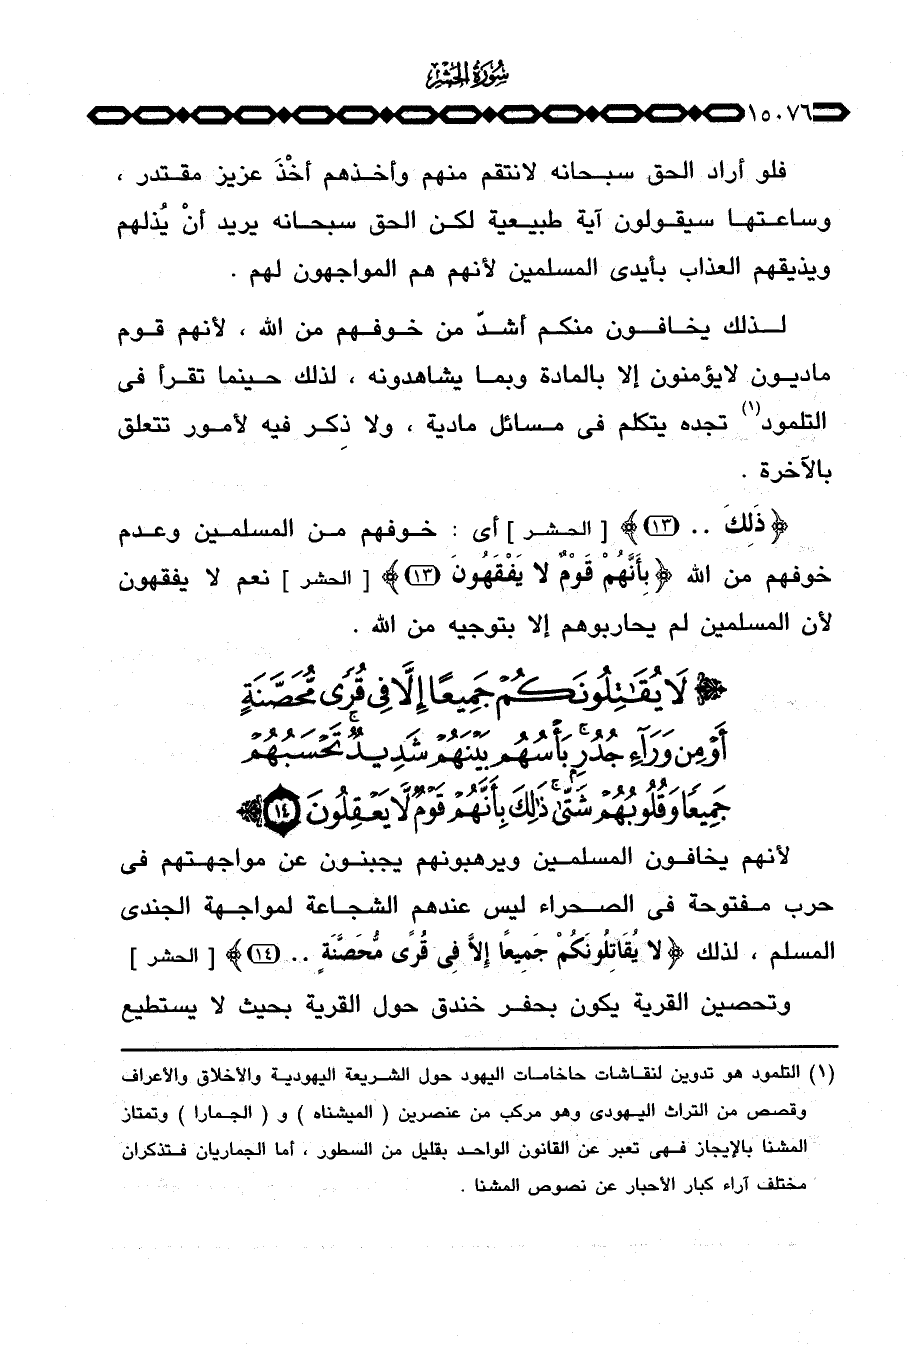 سُورَةُ الحَشْرِ
١٥٠٧٦
فلو أراد الحق سبحانه لانتقم منهم وأخذهم أخْذَ عزيز مقتدر ،
وساعتها سيقولون آية طبيعية لكن الحق سبحانه يريد أنْ يُذلهم
ويذيقهم العذاب بأيدى المسلمين لأنهم هم المواجهون لهم .
لذلك يخافون منكم أشدّ من خوفهم من الله ، لأنهم قوم
ماديون لايؤمنون إلا بالمادة وبما يشاهدونه ، لذلك حينما تقرأ فى
التلمود(١) تجده يتكلم فى مسائل مادية ، ولا ذكر فيه لأمور تتعلق
بالآخرة .
﴿ذَلكَ .. (١٣)﴾ [ الحشر ] أى : خوفهم من المسلمين وعدم
خوفهم من الله ﴿بِأَنَّهُمْ قَوْمٌ لا يَفْقَهُونَ (١٣)﴾ [ الحشر ] نعم لا يفقهون
لأن المسلمين لم يحاربوهم إلا بتوجيه من الله .
﴿ لَا يُقَٰتِلُونَكُمْ جَمِيعًا إِلَّا فِي قُرًى مُّحَصَّنَةٍ
أَوْ مِن وَرَآءِ جُدُرٍۚ بَأْسُهُم بَيْنَهُمْ شَدِيدٌۚ تَحْسَبُهُمْ
جَمِيعًا وَقُلُوبُهُمْ شَتَّىٰۚ ذَٰلِكَ بِأَنَّهُمْ قَوْمٌ لَّا يَعْقِلُونَ (١٤) ﴾
لأنهم يخافون المسلمين ويرهبونهم يجبنون عن مواجهتهم فى
حرب مفتوحة فى الصحراء ليس عندهم الشجاعة لمواجهة الجندى
المسلم ، لذلك ﴿لا يُقَاتلُونَكُمْ جَميعًا إلاَّ فى قُرًى مُّحَصَّنَةٍ .. (١٤)﴾ [ الحشر ]
وتحصين القرية يكون بحفر خندق حول القرية بحيث لا يستطيع
(١) التلمود هو تدوين لنقاشات حاخامات اليهود حول الشريعة اليهودية والأخلاق والأعراف
وقصص من التراث اليهودى وهو مركب من عنصرين ( الميشناه ) و ( الجمارا ) وتمتاز
المشنا بالإيجاز فهى تعبر عن القانون الواحد بقليل من السطور ، أما الجماريان فتذكران
مختلف آراء كبار الأحبار عن نصوص المشنا .